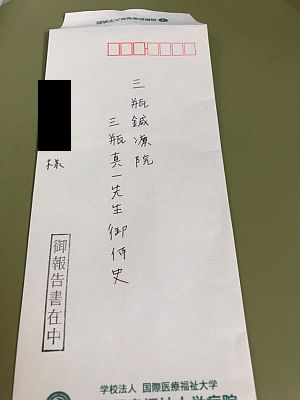 三瓶鍼療院
三瓶真一先生 御侍史
様
御報告書在中
学校法人 国際医療福祉大学
福祉大学病院